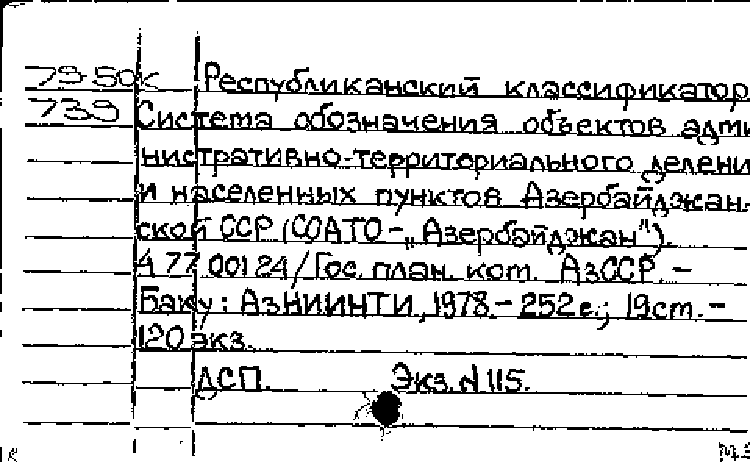 79-50к Республиканский классификатор
739 Система обозначения объектов адми
нистративно-территориального делени
и населенных пунктов Азербайджан-
ской ССР (СОАТО-„Азербайджан").
4 77 00124/Гос. план. ком. АзССР. -
Баку: АзНИИНТИ, 1978.- 252 с.; 19 ст. -
120 экз.
ДСП. Экз. N 115.